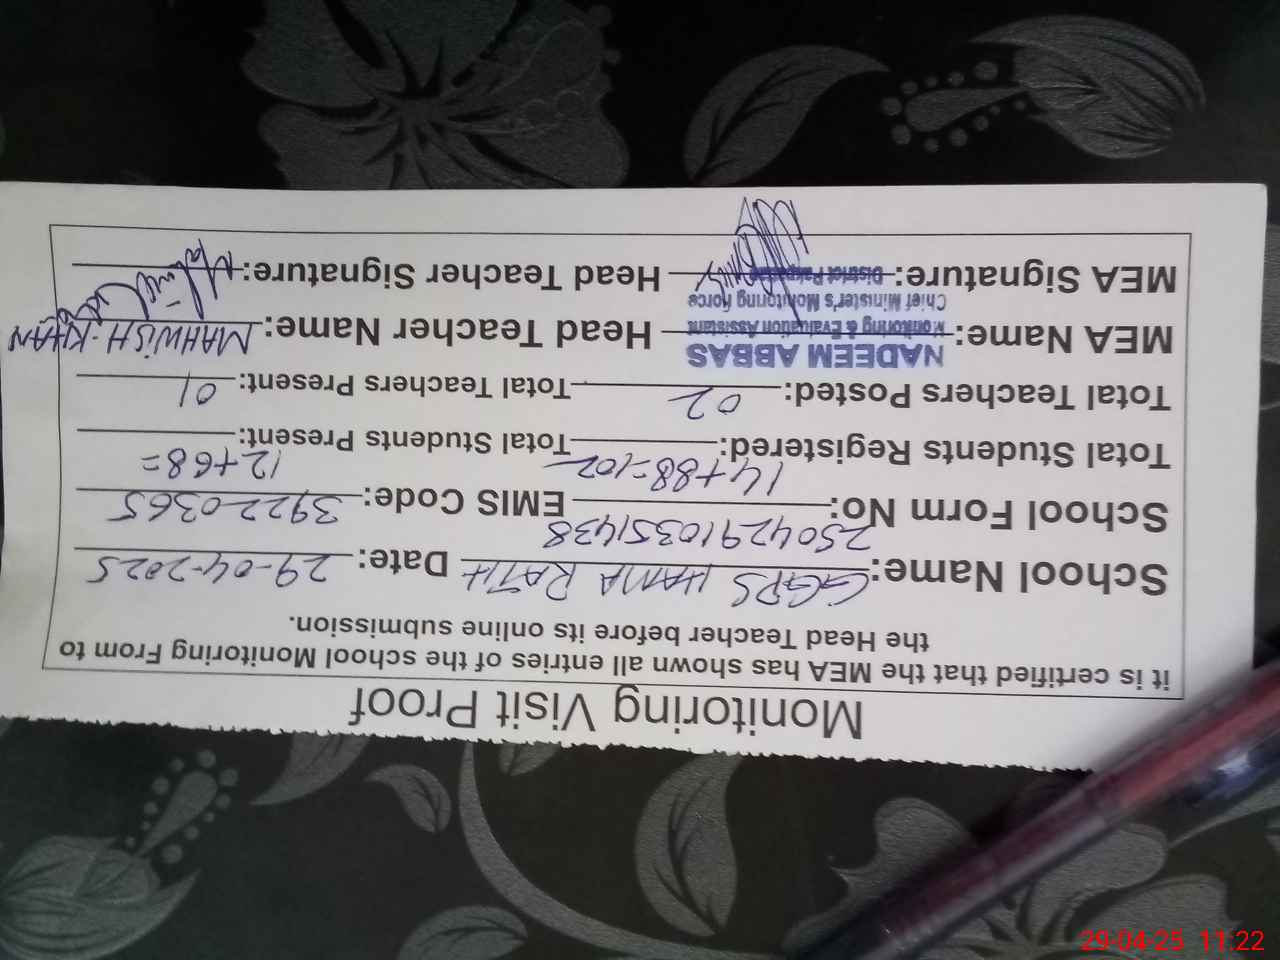 Monitoring Visit Proof
it is certified that the MEA has shown all entries of the school Monitoring From to
the Head Teacher before its online submission.
School Name: GGPS HATHA RATH Date: 29-04-2025
School Form No: 25042910351438 EMIS Code: 39220365
Total Students Registered: 14+88=102 Total Students Present: 12+68=
Total Teachers Posted: 02 Total Teachers Present: 01
MEA Name: NADEEM ABBAS Head Teacher Name: MAHWISH-KHAN
Monitoring & Evaluation Assistant
Chief Minister's Monitoring Force
MEA Signature: District Pakpattan Head Teacher Signature:
29-04-25 11:22